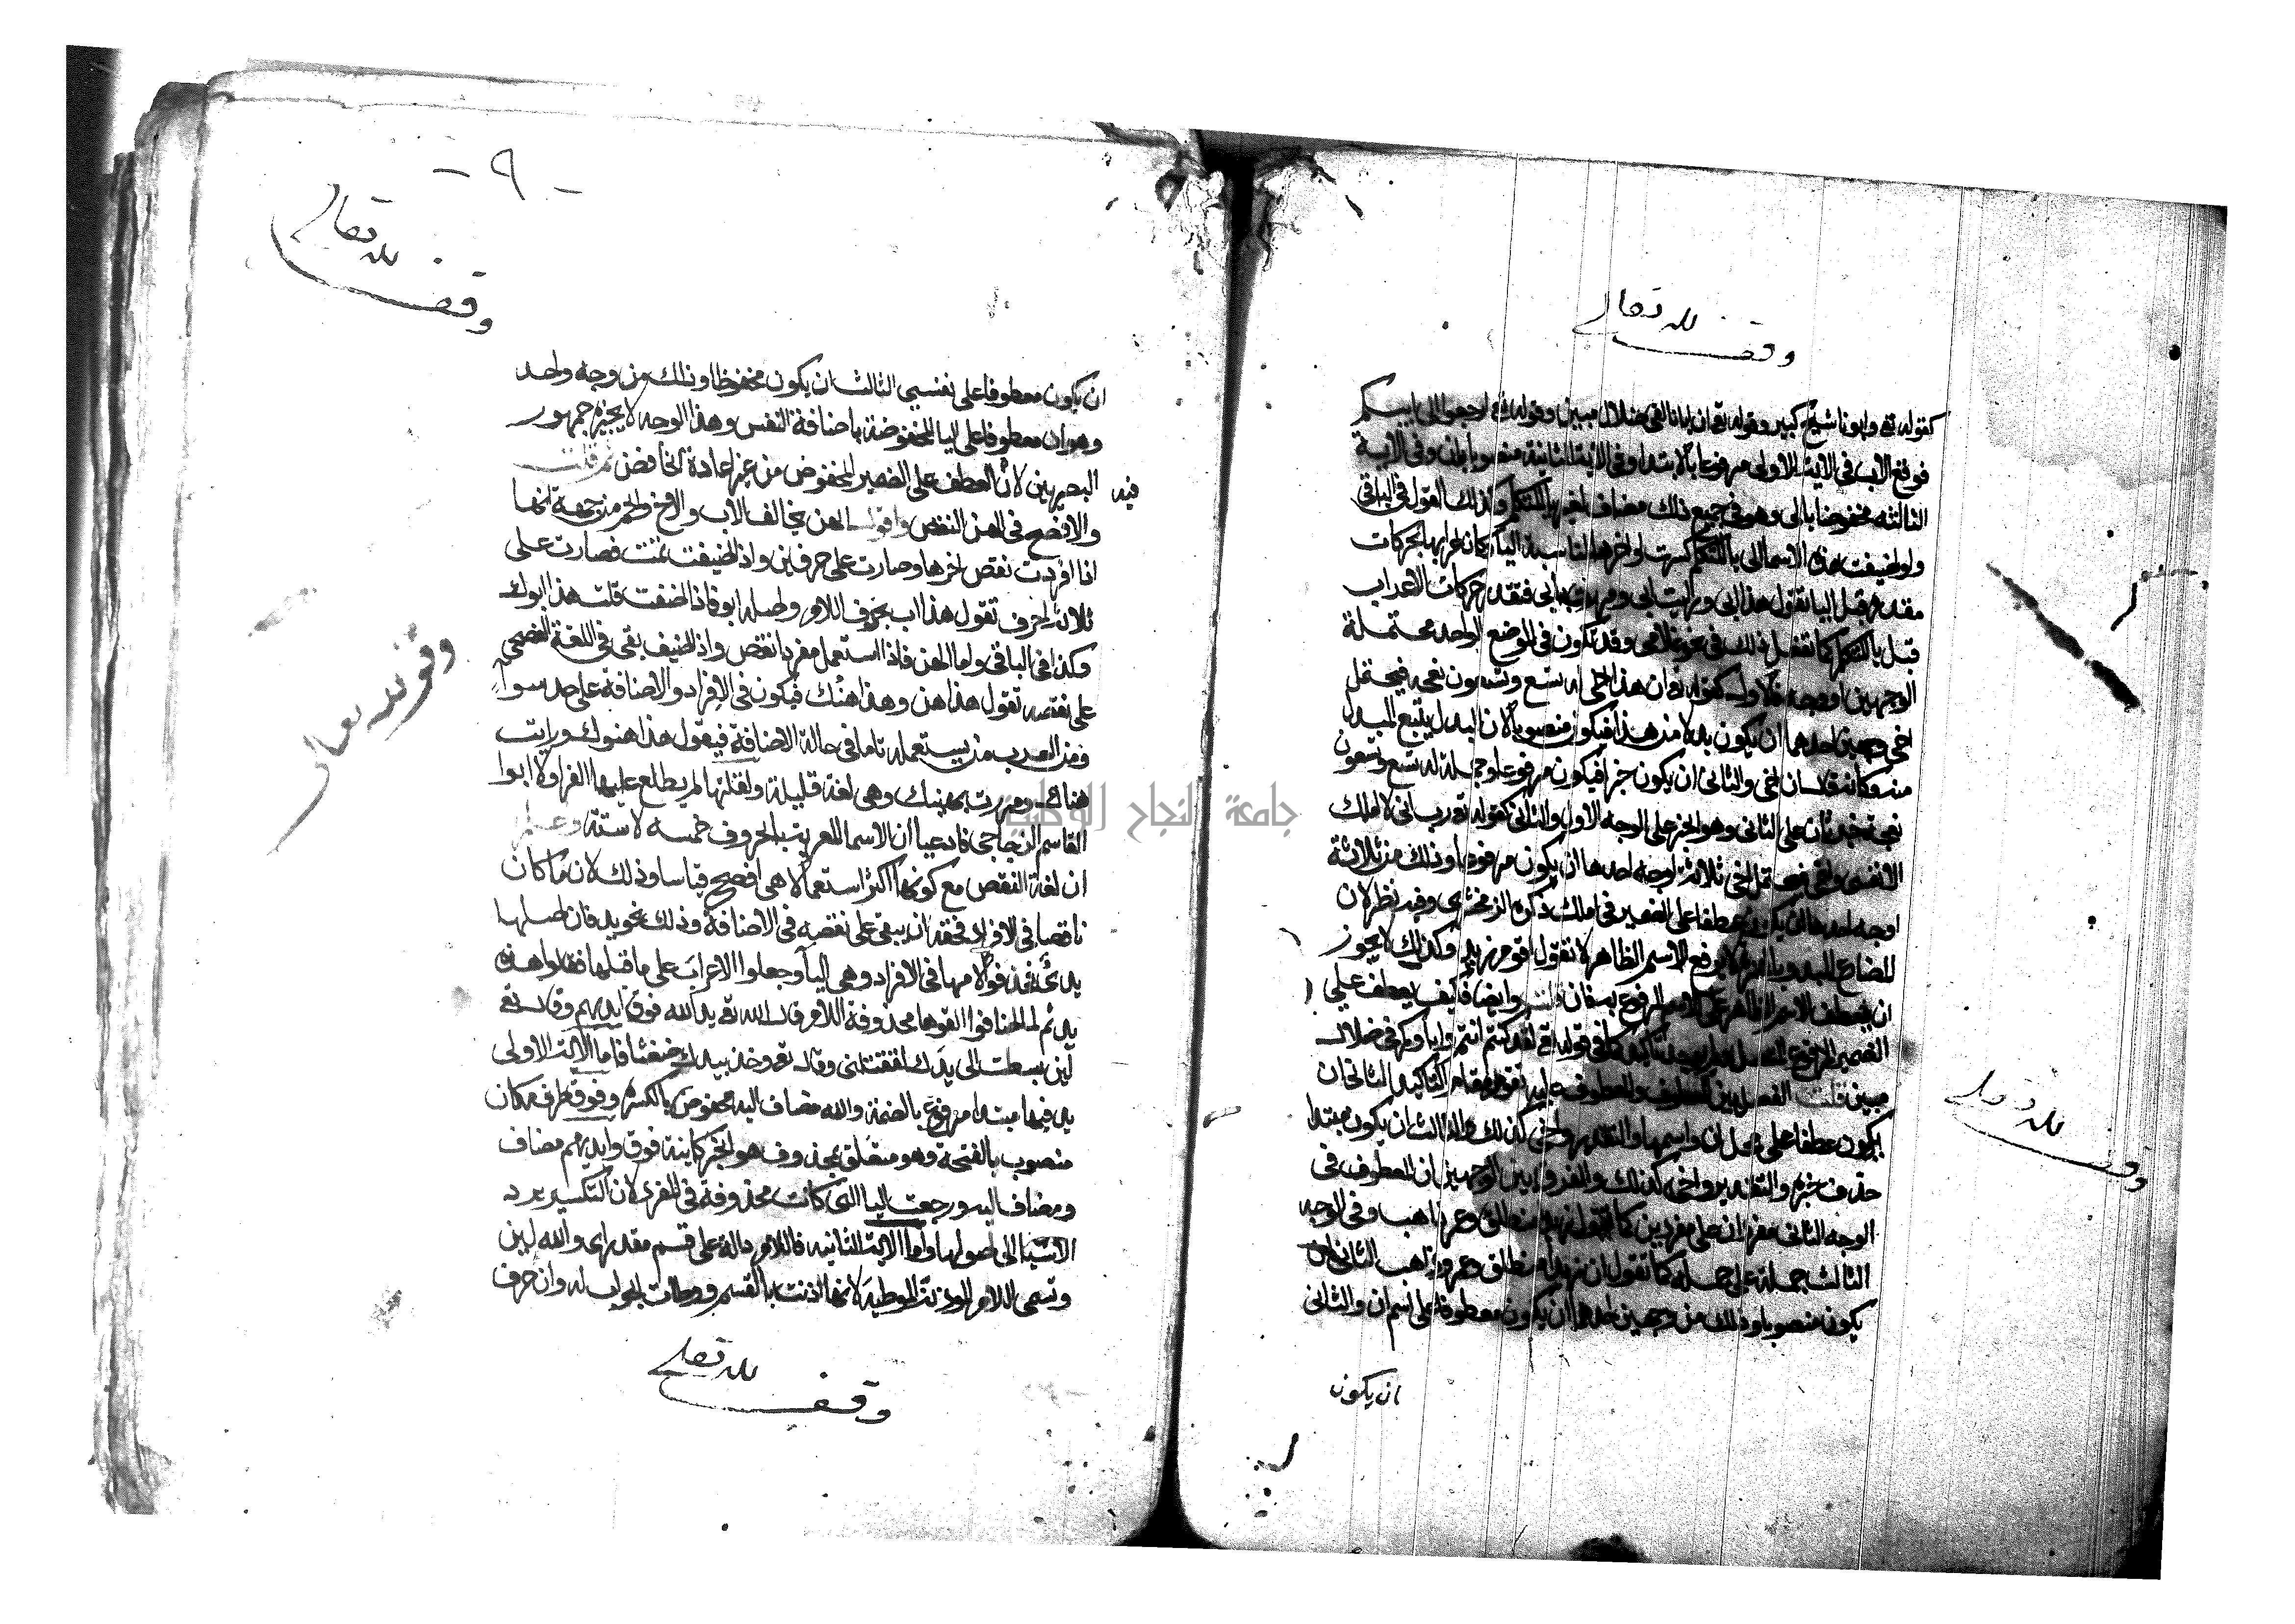 وقف لله تعالى
كقوله تع وابونا شيخ كبير وقوله تع ان ابانا لفى ضلال مبين وقوله تع ارجعوا الى ابيكم
فوقع الاب فى الاية الاولى مرفوعا بالابتدا وفى الاية الثانية منصوبا بان وفى الاية
الثالثه مخفوضا بالى وهو فى جميع ذلك مضاف لغير يا المتكلم وكذلك القول فى الباقى
ولو اضيفت هذه الاسما الى يا المتكلم كسرت اواخرها لمناسبة اليا وكان اعرابها بحركات
مقدرة قبل اليا تقول هذا ابى ورايت ابى ومررت بابى فتقدر حركات الاعراب
قبل يا المتكلم كما تفعل ذلك فى نحو غلامى وقد تكون فى الموضع الواحد محتملة
لوجهين او وجه فالاول كقوله تع ان هذا اخى له تسع وتسعون نعجه فيحتمل
اخى وجهين احدهما ان يكون بدلا من هذا فيكون منصوبا لان البدل يتبع المبدل
منه فكانه قال ان اخى والثانى ان يكون خبرا فيكون مرفوعا وجملة له تسع وتسعون
نعجة خبر ثان على الثانى وهو الخبر على الوجه الاول والثانى كقوله تع رب انى لا املك
الا نفسى واخى فيحتمل اخى ثلاثة اوجه احدها ان يكون مرفوعا وذلك من ثلاثة
اوجه احدها ان يكون عطفا على الضمير فى املك ذكره الزمخشرى وفيه نظر لان
المضارع المبدو بالهمزة لا يرفع الاسم الظاهر لا تقول اقوم زيد وكذلك لا يجوز
ان يعطف الاسم الظاهر على الاسم المرفوع به فان قلت وايضا فكيف يعطف على
الضمير المرفوع المتصل ولم يوجد تاكيد كما فى قوله تع لقد كنتم انتم واباوكم فى ضلال
مبين قلت الفصل بين المعطوف والمعطوف عليه يقوم مقام التاكيد الثانى ان
يكون عطفا على محل ان واسمها والتقدير واخى كذلك والثالث ان يكون مبتدا
حذف خبره والتقدير واخى كذلك والفرق بين الوجهين ان المعطوف فى
الوجه الثانى مفردان على مفردين كما تقول ان زيدا منطلق وعمرا ذاهب وفى الوجه
الثالث جملة على جمله كما تقول ان زيدا منطلق وعمرو ذاهب الثانى ان
يكون منصوبا وذلك من وجهين احدهما ان يكون معطوفا على اسم ان والثانى
ان يكون
وقف لله تعالى
- ٩ -
وقف لله تعالى
ان يكون معطوفا على نفسى الثالث ان يكون مخفوظا وذلك من وجه واحد
وهو ان معطوفا على اليا المخفوضة باضافة النفس وهذا الوجه لا يجيزه جمهور
البصريين لان العطف على الضمير المخفوض من غير اعادة الخافض ثم قلت
فيه
والافصح فى الهن النقص واقول الهن يخالف الاب والاخ والحم من جهة انها
اذا افردت نقص اخرها وصارت على حرفين واذا اضيفت تمت فصارت على
ثلاثة احرف تقول هذا اب بحذف اللام واصله ابو فاذا اضفت قلت هذا ابوك
وكذا فى الباقى واما الهن فاذا استعمل مفردا نقص واذا اضيف بقى فى اللغة الفصحى
على نقصه تقول هذا هن وهذا هنك فيكون فى الافراد والاضافة على حد سوا
ومن العرب من يستعمله تاما فى حالة الاضافة فيقول هذا هنوك ورايت
هناك ومررت بهنيك وهى لغة قليلة ولقلتها لم يطلع عليها الفرا ولا ابوا
القاسم الزجاجى فادعيا ان الاسما المعربة بالحروف خمسه لا سته وعلم
ان لغة النقص مع كونها اكثر استعمالا هى افصح قياسا وذلك لان ما كان
ناقصا فى الافراد فحقه ان يبقى على نقصه فى الاضافة وذلك نحو يد فان اصلها
يدى فحذفوا لامها فى الافراد وهى اليا وجعلوا الاعراب على ما قبلها فقالوا هذه
يد ثم لما اضافوا ابقوها محذوفة اللام قال الله تع يد الله فوق ايديهم وقال تع
لين بسطت الى يدك لتقتلنى وقال تع وخذ بيدك ضغثا فاما الاية الاولى
يد فيها مبتدا مرفوع بالضمة والله مضاف اليه مخفوض بالكسره وفوق ظرف مكان
منصوب بالفتحة وهو متعلق بمحذوف هو الخبر كاينة فوق وايديهم مضاف
ومضاف اليه ورجعت اليا التى كانت محذوفة فى المفرد لان التكسير يرد
الاشيا الى اصولها واما الاية الثانيه فاللام دالة على قسم مقدر اى والله لين
وتسمى اللام الموذنة والموطية لانها اذنت بالقسم ووطات الجواب له وان حرف
وقف لله تعالى
وقف لله تعالى
جامعة النجاح الوطنية